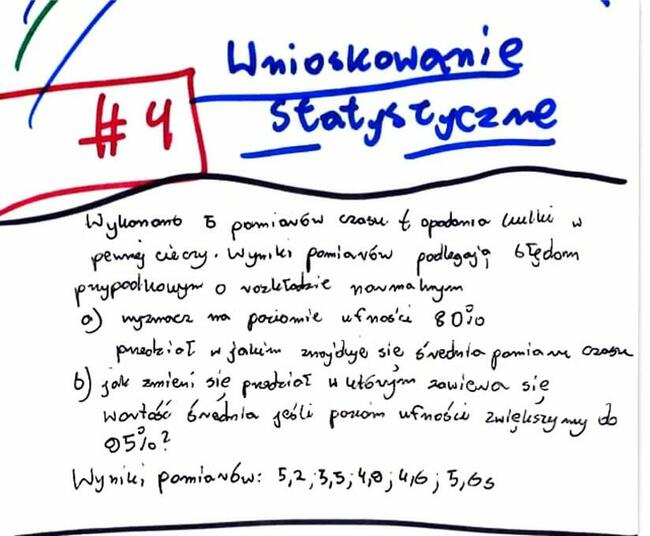 Wnioskowanie
#4
statystyczne
Wykonano 5 pomiarów czasu t opadania kulki w
pewnej cieczy. Wyniki pomiarów podlegają błędom
przypadkowym o rozkładzie normalnym
a) wyznacz na poziomie ufności 80%
przedział w jakim znajduje się średnia pomiaru czasu
b) jak zmieni się przedział w którym zawiera się
wartość średnia jeśli poziom ufności zwiększymy do
95%?
Wyniki pomiarów: 5,2; 3,5; 4,9; 4,6; 5,6s